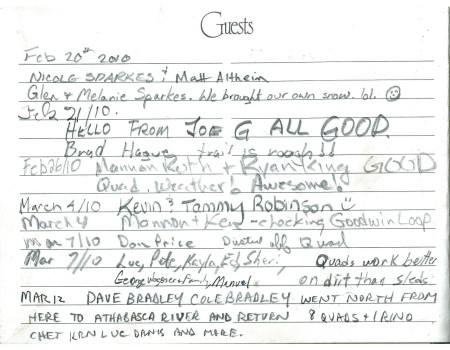 Guests
Feb 20th 2010
NICOLE SPARKES & Matt Altheim
Glen & Melanie Sparkes. We brought our own snow. lol. ☺
Feb 21/10.
HELLO FROM JOE G ALL GOOD
Brad Hague trail is rough!!
Feb 26/10 Mannon Keith + Ryan King GOOD
Quad, Weather! Awesome!
March 4/10 Kevin & Tammy Robinson ☺
March 4 Mannon + Ken - checking Goodwin Loop
Mar 7/10 Don Price Dusted off Quad
Mar 7/10 Luc, Pete, Kayla, Ed, Sheri, Quads work better
George & Family, Manuel on dirt than sleds
MAR 12 DAVE BRADLEY COLE BRADLEY WENT NORTH FROM
HERE TO ATHABASCA RIVER AND RETURN 8 QUADS + 1 RINO
CHET KEN LUC DANIS AND MARE.